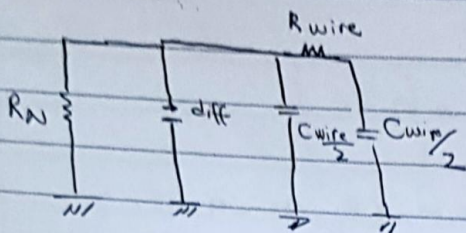 R wire
RN
diff
Cwire/2
Cwire/2